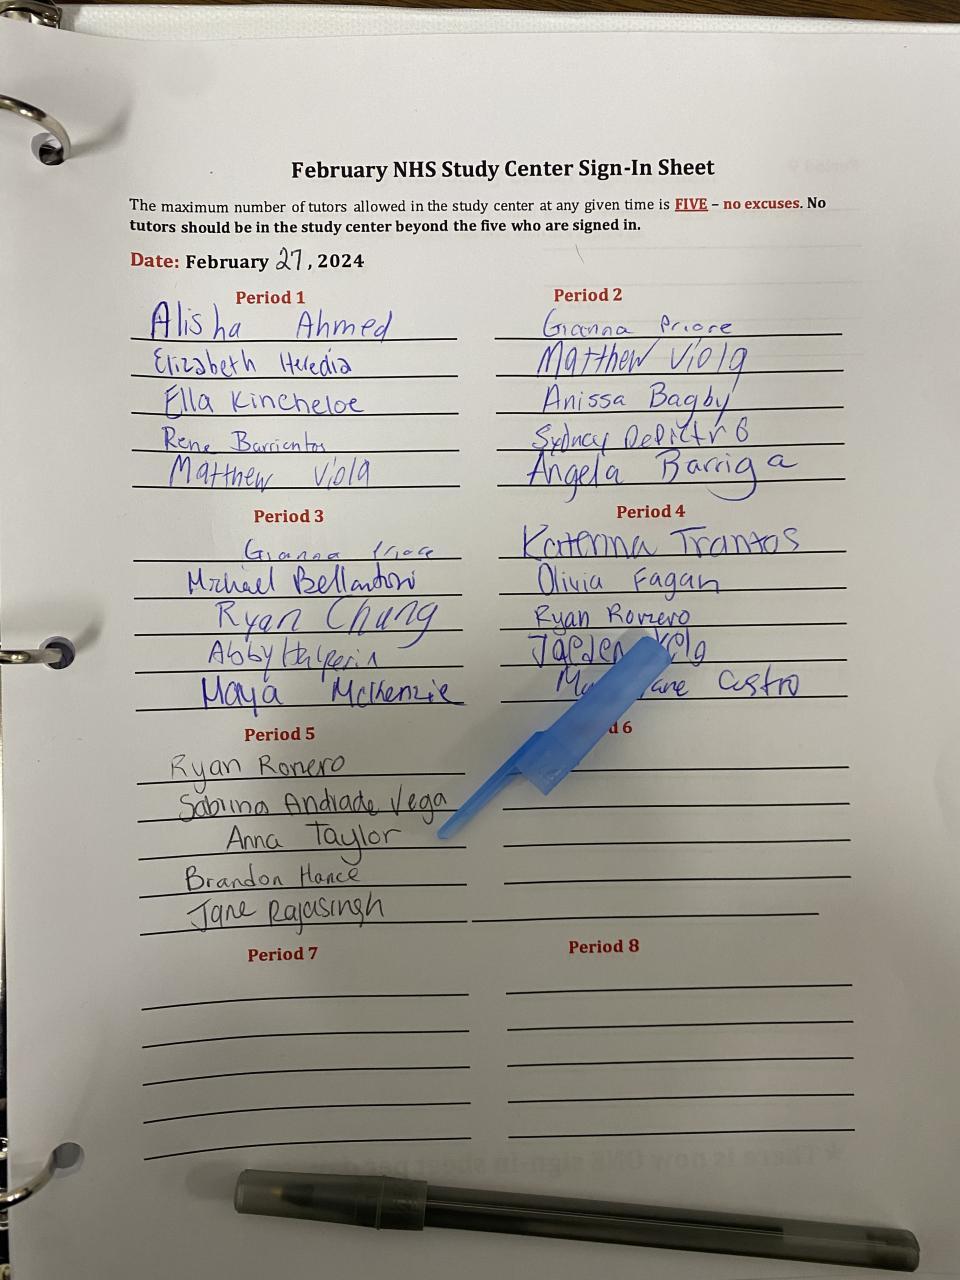 February NHS Study Center Sign-In Sheet
The maximum number of tutors allowed in the study center at any given time is FIVE – no excuses. No
tutors should be in the study center beyond the five who are signed in.
Date: February 27, 2024
Period 1
Alisha Ahmed
Elizabeth Heredia
Ella Kincheloe
Rene Barrientos
Matthew Viola
Period 2
Gianna Priore
Matthew Viola
Anissa Bagby
Sydney
Angela Barriga
Period 3
Gianna Priore
Michael Bellantoni
Ryan Chung
Abby Halperin
Maya McKenzie
Period 4
Katerina Trantos
Olivia Fagan
Ryan Romero
Jaeden
Castro
Period 5
Ryan Romero
Sabrina Andrade Vega
Anna Taylor
Brandon Hance
Jane Rajasingh
6
Period 7
Period 8